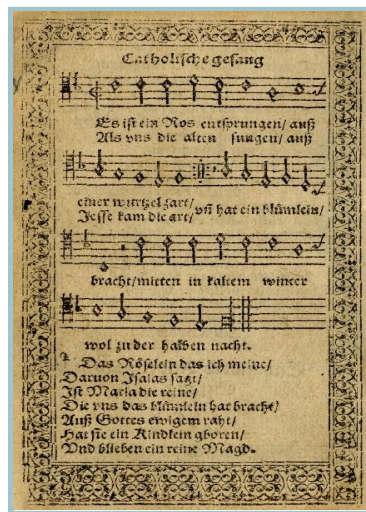 Catholische gesang
Es ist ein Ros entsprungen/ auß
Als vns die alten sungen/ auß
einer wurtzel zart/
Jesse kam die art/ vñ hat ein blümlein/
bracht/mitten in kaltem winter
wol zu der halben nacht.
2.
Das Röselein das ich meine/
Daruon Isaias sagt/
Ist Maria die reine/
Die vns das blümlein hat bracht/
Auß Gottes ewigem raht/
Hat sie ein Kindlein gboren/
Vnd blieben ein reine Magd.